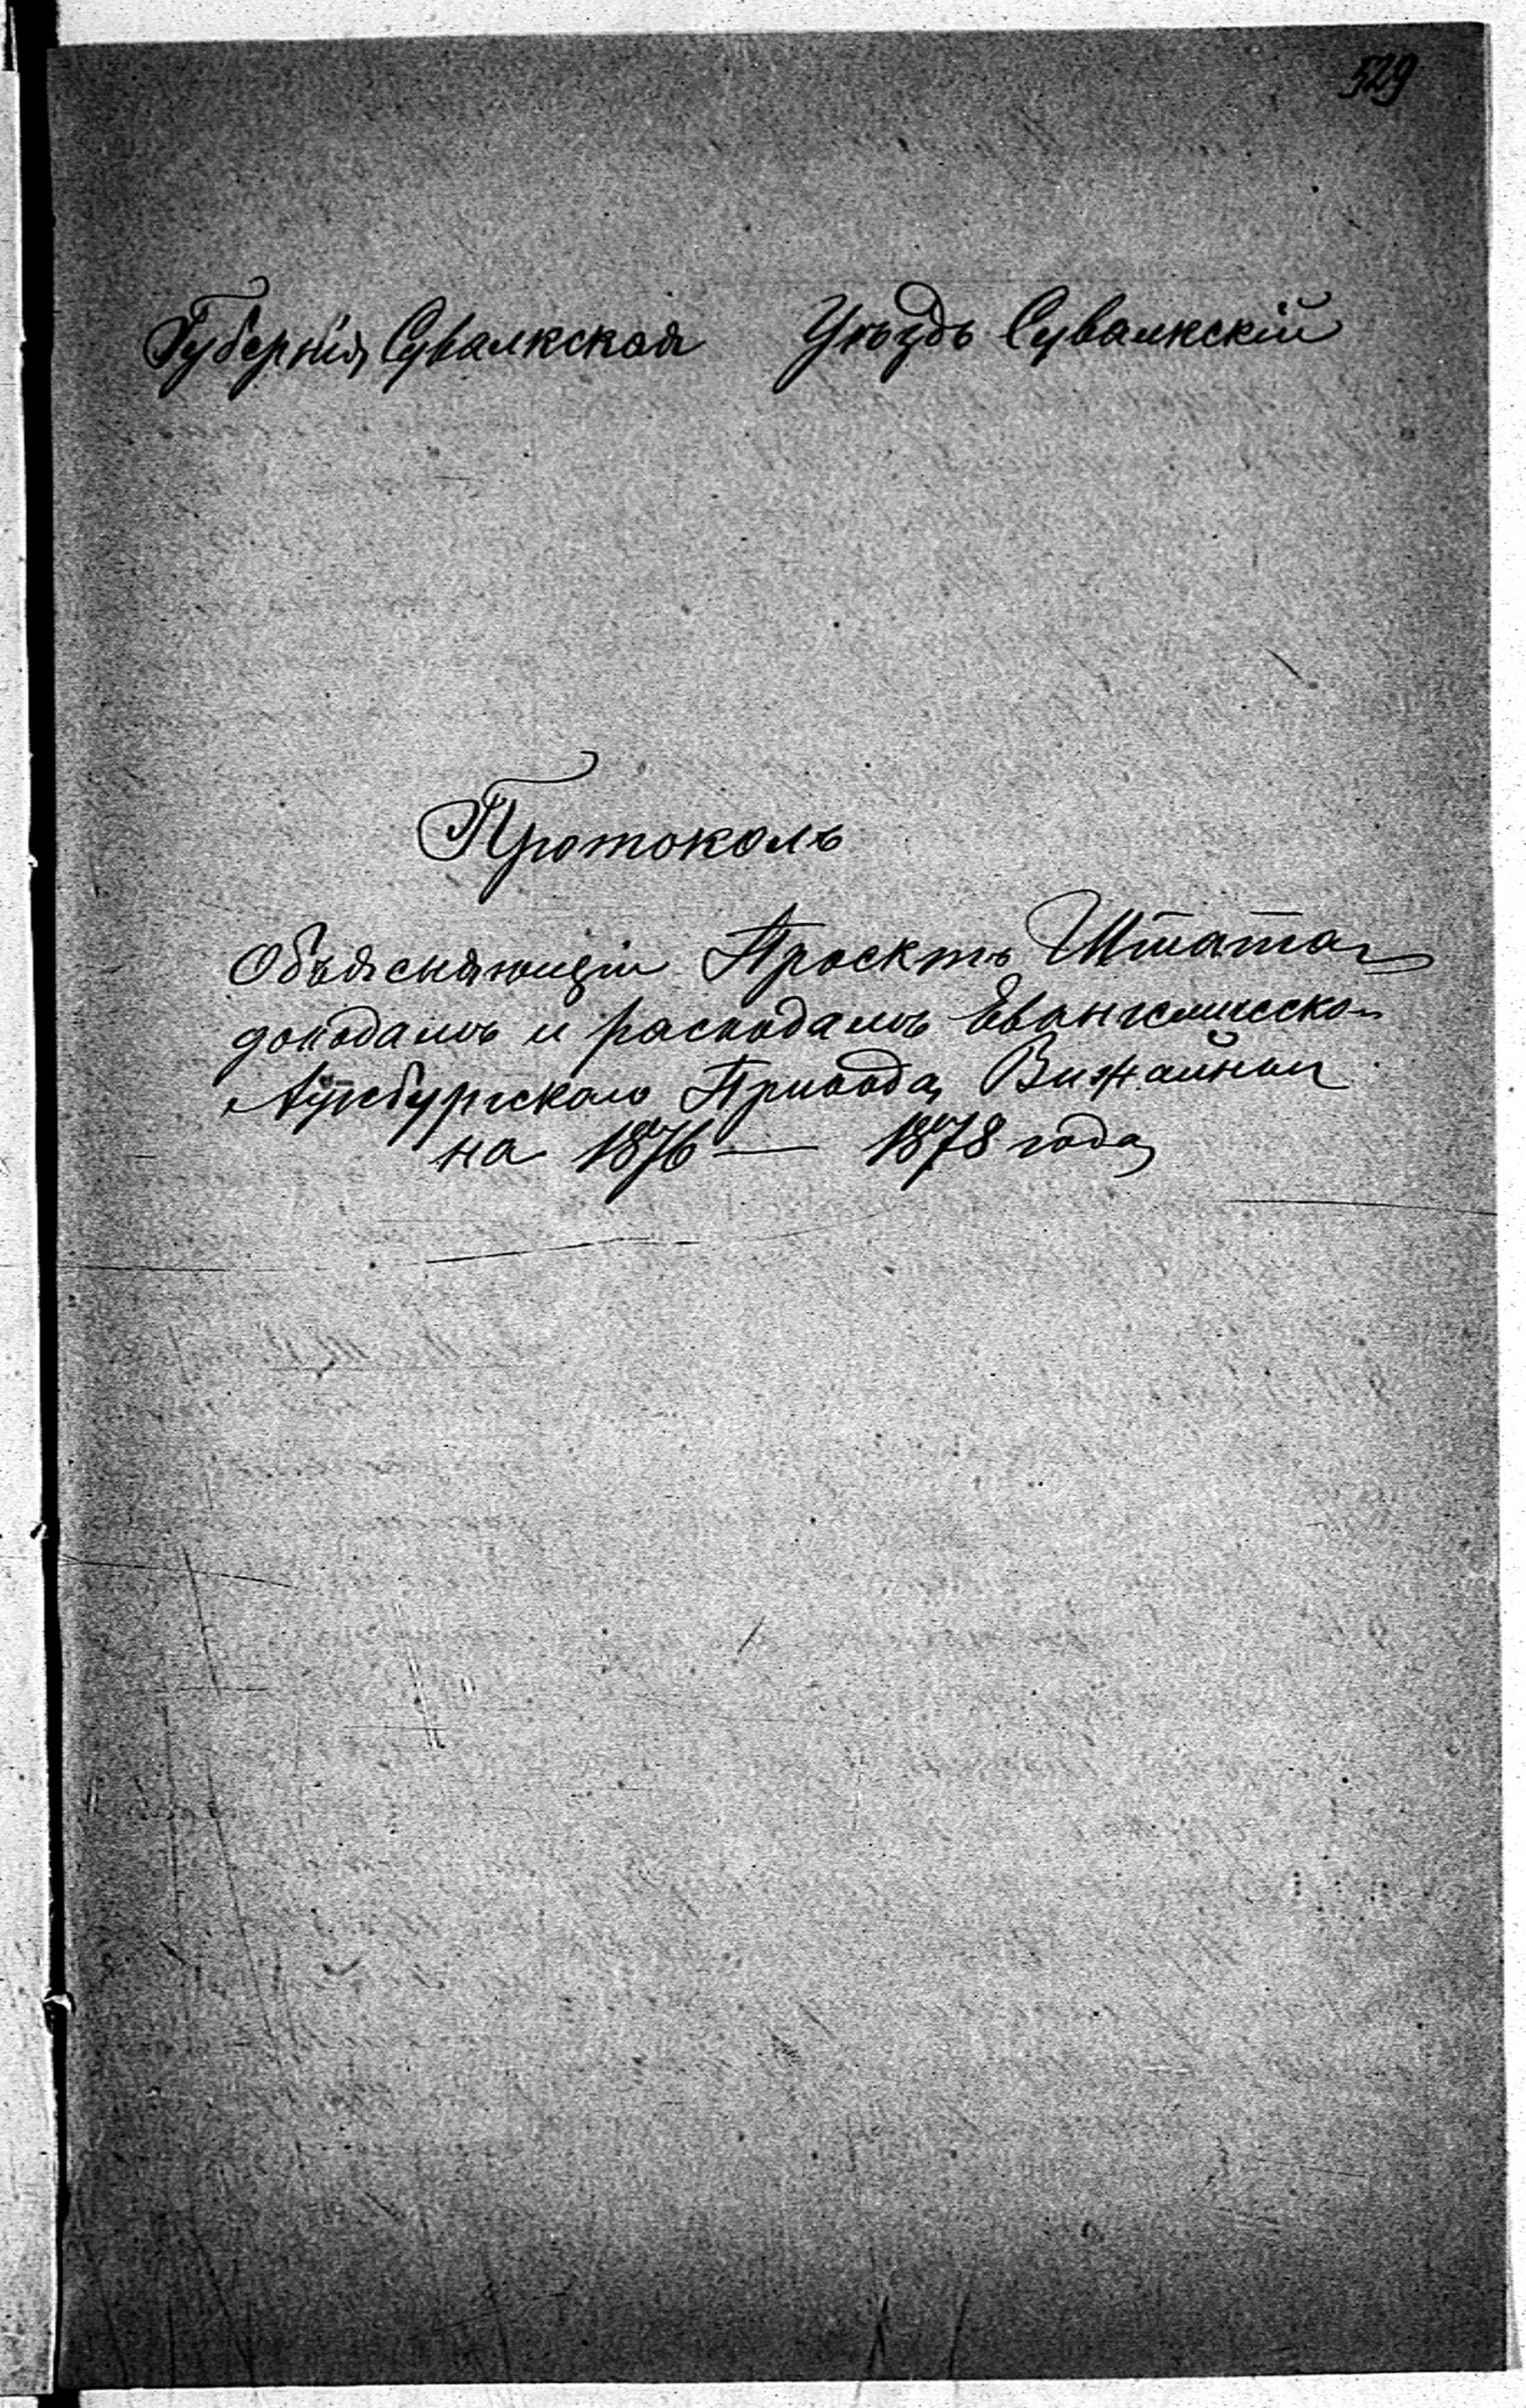 529
Губернія Сувалкская Уѣздъ Сувалкскій
Протоколъ
Объясняющій Проектъ Штата
доходамъ и расходамъ Евангелическо-
Аугсбургскаго Прихода Вижайны
на 1876 — 1878 года